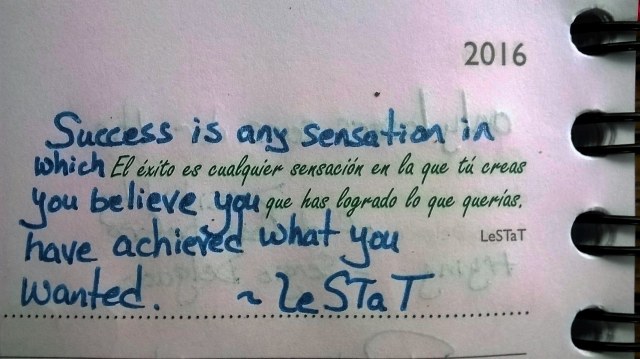 2016
Success is any sensation in
which El éxito es cualquier sensación en la que tú creas
you believe you que has logrado lo que querías.
have achieved what you
LeSTaT
wanted. ~ LeSTaT